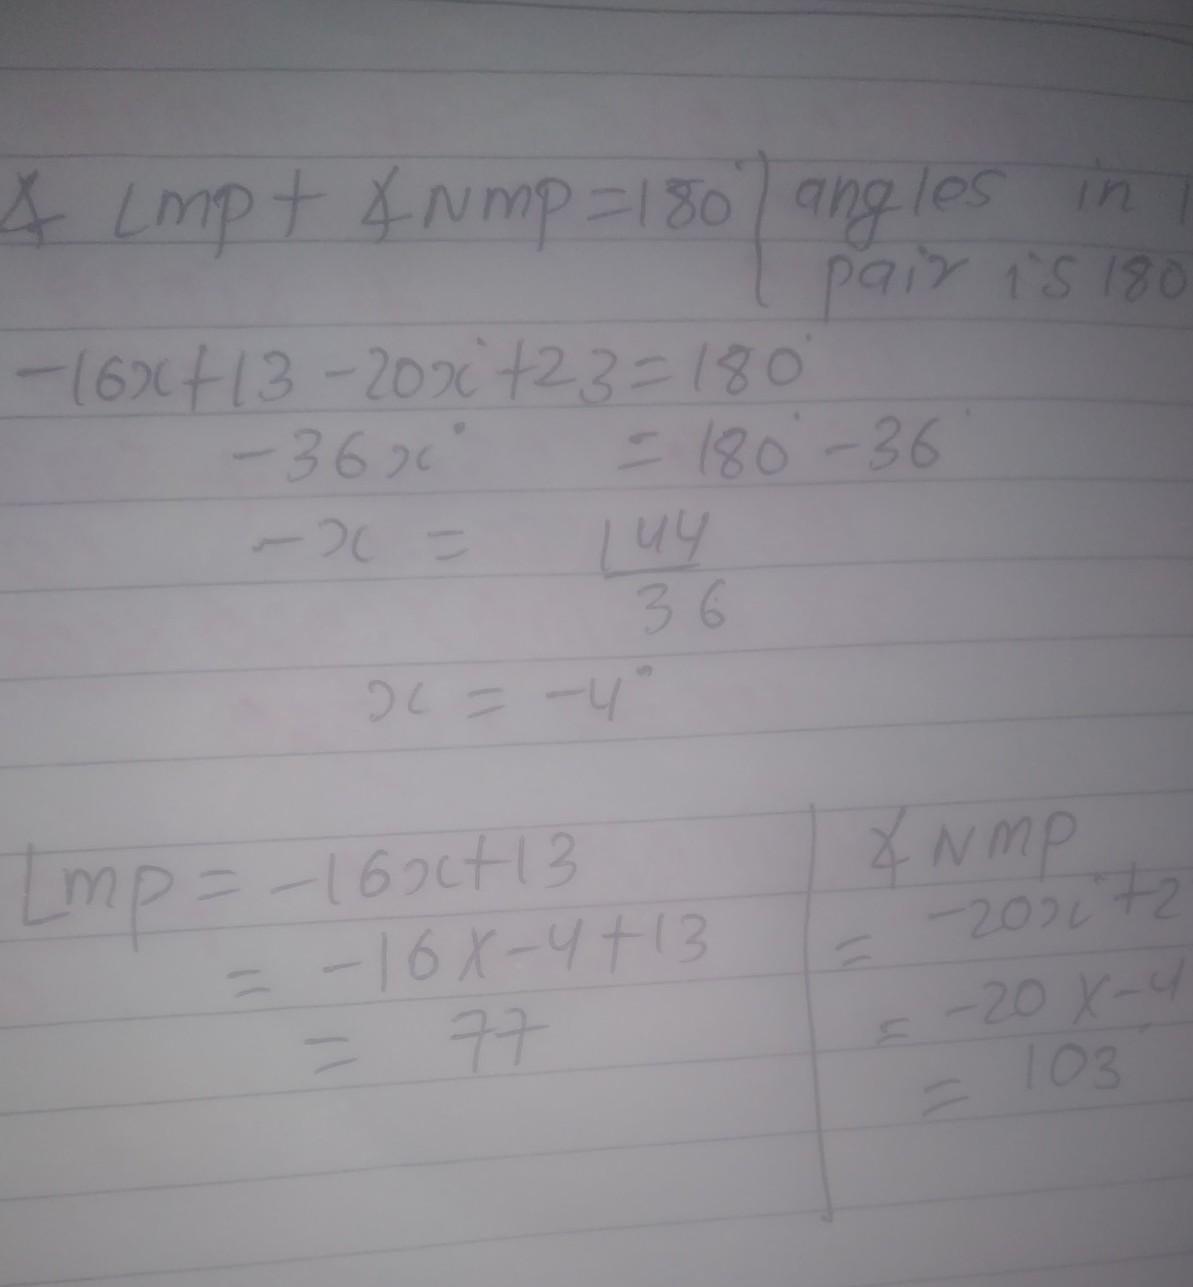 ∡ LMP + ∡ NMP = 180° | angles in
pair is 180
-16x + 13 - 20x° + 23 = 180°
-36x° = 180° - 36°
-x = 144/36
x = -4°
LMP = -16x + 13
= -16 x -4 + 13
= 77
∡ NMP
= -20x° + 2
= -20 x -4
= 103